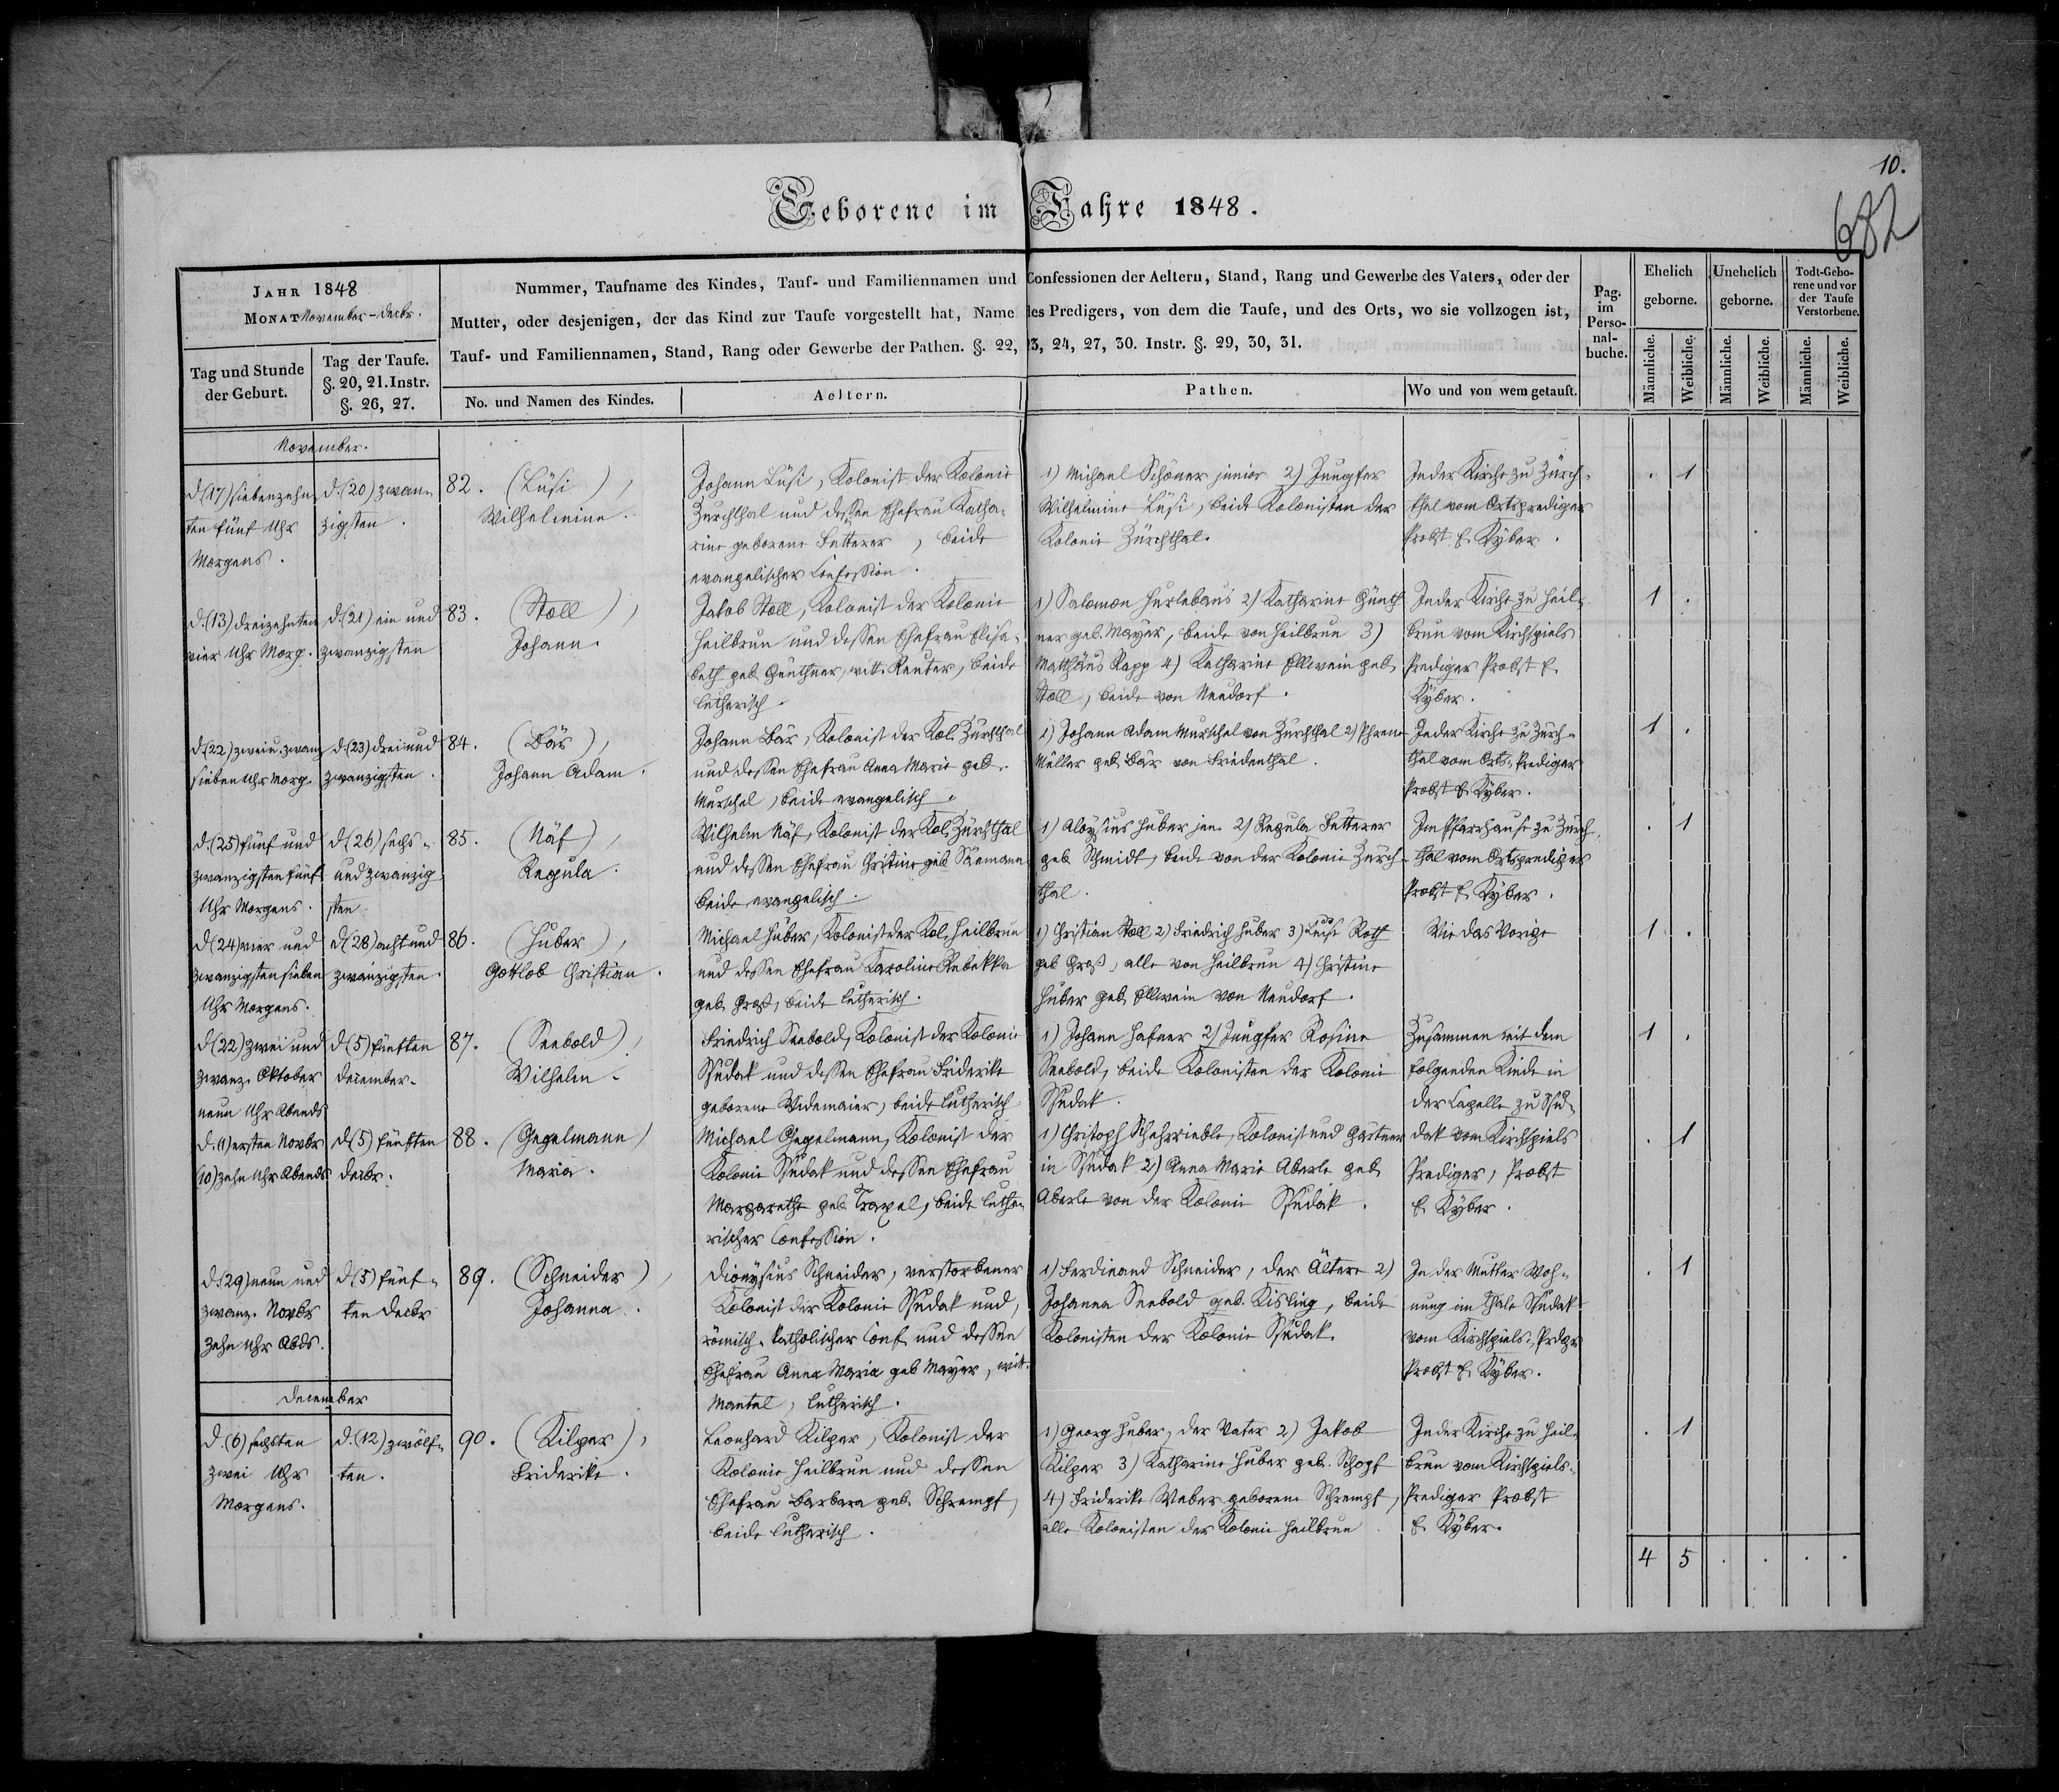 10.
682
Geborene im Jahre 1848.
JAHR 1848
MONAT November - Decbr.
Tag und Stunde
der Geburt.
Tag der Taufe.
§. 20, 21. Instr.
§. 26, 27.
Nummer, Taufname des Kindes, Tauf- und Familiennamen und Confessionen der Aeltern, Stand, Rang und Gewerbe des Vaters, oder der
Mutter, oder desjenigen, der das Kind zur Taufe vorgestellt hat, Name des Predigers, von dem die Taufe, und des Orts, wo sie vollzogen ist,
Tauf- und Familiennamen, Stand, Rang oder Gewerbe der Pathen. §. 22, 23, 24, 27, 30. Instr. §. 29, 30, 31.
No. und Namen des Kindes.
Aeltern.
Pathen.
Wo und von wem getauft.
Pag.
im
Perso-
nal-
buche.
Ehelich
geborne.
Unehelich
geborne.
Todt-Gebo-
rene und vor
der Taufe
Verstorbene.
Männliche.
Weibliche.
Männliche.
Weibliche.
Männliche.
Weibliche.
November.
d. (17) siebenzehn
ten fünf Uhr
Morgens.
d. (20) zwan-
zigsten.
82. (Lüsi),
Wilhelmine.
Johann Lüsi, Kolonist der Kolonie
Zürchthal und dessen Ehefrau Katha-
rine geborene Fetterer, beide
evangelischer Confession.
1) Michael Schöner junior 2) Jungfer
Wilhelmine Lüsi, beide Kolonisten der
Kolonie Zürchthal.
In der Kirche zu Zürch-
thal vom Ortsprediger
Probst E. Kyber.
. 1
d. (13) dreizehnten
vier Uhr Morg.
d. (21) ein und
zwanzigsten
83. (Stoll),
Johann.
Jakob Stoll, Kolonist der Kolonie
Heilbrun und dessen Ehefrau Elisa-
beth geb. Günthner, witt. Reuter, beide
lutherisch.
1) Salomon Hurlebaus 2) Katharine Günth
ner geb. Mayer, beide von Heilbrun 3)
Matthäus Rapp 4) Katharine Ellwein geb.
Stoll, beide von Neudorf.
In der Kirche zu Heil-
brun vom Kirchspiels
Prediger Probst E.
Kyber.
1 .
d. (22) zwei u. zwanz
sieben Uhr Morg.
d. (23) drei und
zwanzigsten.
84. (Bär),
Johann Adam.
Johann Bär, Kolonist der Kol. Zürchthal
und dessen Ehefrau Anna Marie geb.
Murschel, beide evangelisch.
1) Johann Adam Murschel von Zürchthal 2) Phrene
Müller geb. Bär von Friedenthal.
In der Kirche zu Zürch-
thal vom Orts-Prediger
Probst E. Kyber.
1 .
d. (25) fünf und
zwanzigsten fünf
Uhr Morgens.
d. (26) sechs-
und zwanzig
sten
85. (Näf),
Regula.
Wilhelm Näf, Kolonist der Kol. Zürchthal
und dessen Ehefrau Christine geb. Säemann
beide evangelisch.
1) Aloysius Huber jun. 2) Regula Fetterer
geb. Schmidt, beide von der Kolonie Zürch-
thal.
Im Pfarrhause zu Zürch-
thal vom Ortsprediger
Probst E. Kyber.
. 1
d. (24) vier und
zwanzigsten sieben
Uhr Morgens.
d. (28) acht und
zwanzigsten.
86. (Huber),
Gottlob Christian.
Michael Huber, Kolonist der Kol. Heilbrun
und dessen Ehefrau Karoline Rebekka
geb. Groß, beide lutherisch.
1) Christian Stoll 2) Friedrich Huber 3) Luise Roth
geb. Groß, alle von Heilbrun 4) Christine
Huber geb. Ellwein von Neudorf.
Wie das Vorige
1 .
d. (22) zwei und
zwanz. Oktober
neun Uhr Abends
d. (5) fünften
December.
87. (Seebold),
Wilhelm.
Friedrich Seebold, Kolonist der Kolonie
Ssudak und dessen Ehefrau Friderike
geborene Widemaier, beide lutherisch
1) Johann Hafner 2) Jungfer Rosine
Seebold, beide Kolonisten der Kolonie
Ssudak.
Zusammen mit dem
folgenden Kinde in
der Capelle zu Ssu-
1 .
d. (1) ersten Novbr
(10) zehn Uhr Abends
d. (5) fünften
Decbr.
88. (Gegelmann)
Maria.
Michael Gegelmann, Kolonist der
Kolonie Ssudak und dessen Ehefrau
Margarethe geb. Traxel, beide luthe-
rischer Confession.
1) Christoph Scherrieble, Kolonist und Gärtner
in Ssudak 2) Anna Marie Aberle geb.
Aberle von der Kolonie Ssudak.
dak vom Kirchspiels
Prediger, Probst
E. Kyber.
. 1
d. (29) neun und
zwanz. Novbr
zehn Uhr Abds.
d. (5) fünf-
ten Decbr
89. (Schneider),
Johanna.
Dionysius Schneider, verstorbener
Kolonist der Kolonie Ssudak und,
römisch-katholischer Conf. und dessen
Ehefrau Anna Maria geb. Mayer, witt.
Mantel, lutherisch.
1) Ferdinand Schneider, der Ältere 2)
Johanna Seebold geb. Kisling, beide
Kolonisten der Kolonie Ssudak.
In der Mutter Woh-
nung im Thale Ssudak
vom Kirchspiels-Prdgr
Probst E. Kyber.
. 1
December
d. (6) sechsten
zwei Uhr
Morgens.
d. (12) zwölf-
ten.
90. (Kilper),
Friderike.
Leonhard Kilper, Kolonist der
Kolonie Heilbrun und dessen
Ehefrau Barbara geb. Schrempf,
beide lutherisch.
1) Georg Huber, der Vater 2) Jakob
Kilper 3) Katharine Huber geb. Schopf
4) Friderike Weber geborene Schrempf,
alle Kolonisten der Kolonie Heilbrun
In der Kirche zu Heil-
brun vom Kirchspiels-
Prediger Probst
E. Kyber.
. 1
4 5 . . . .